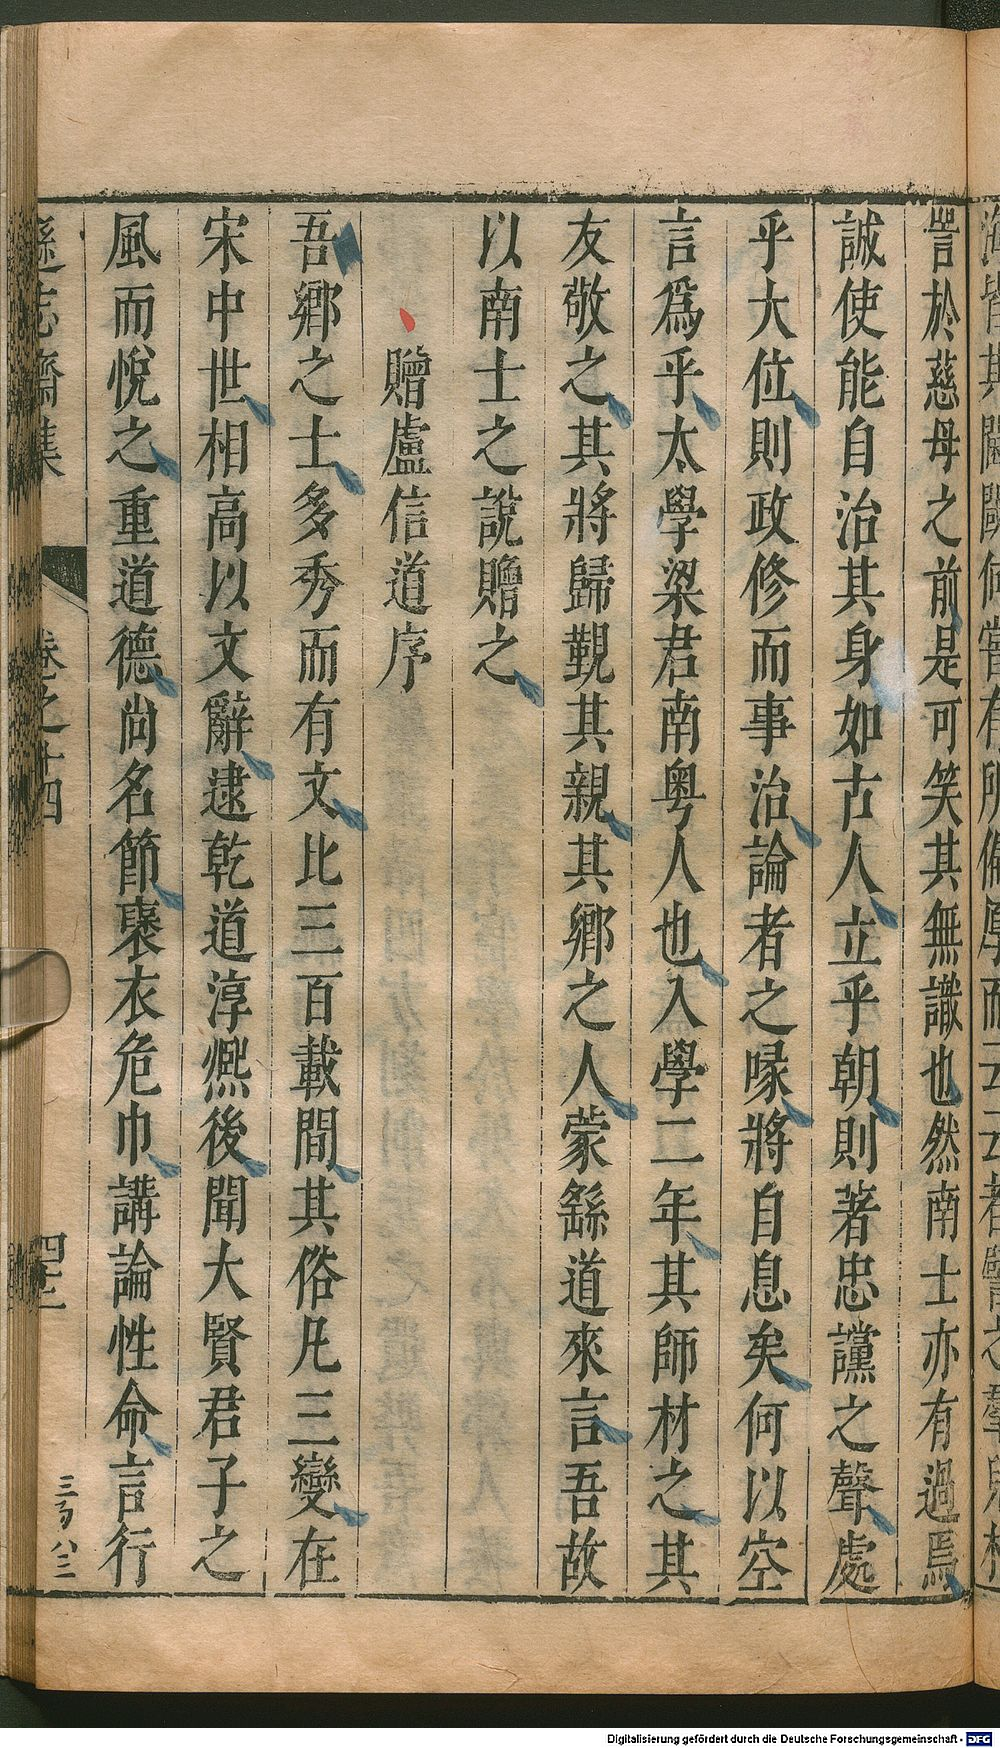 詈於慈母之前是可笑其無識也然南士亦有過焉
誠使能自治其身如古人立乎朝則著忠讜之聲處
乎大位則政修而事治論者之喙將自息矣何以空
言爲乎太學梁君南粤人也入學二年其師材之其
友敬之其將歸覲其親其鄉之人蒙繇道來言吾故
以南士之說贈之
贈盧信道序
吾鄉之士多秀而有文比三百載間其俗凡三變在
宋中世相高以文辭逮乾道淳熈後聞大賢君子之
風而悅之重道德尚名節裦衣危巾講論性命言行
遜志齋集
卷之十四
四十二
三百八三
Digitalisierung gefördert durch die Deutsche Forschungsgemeinschaft - DFG